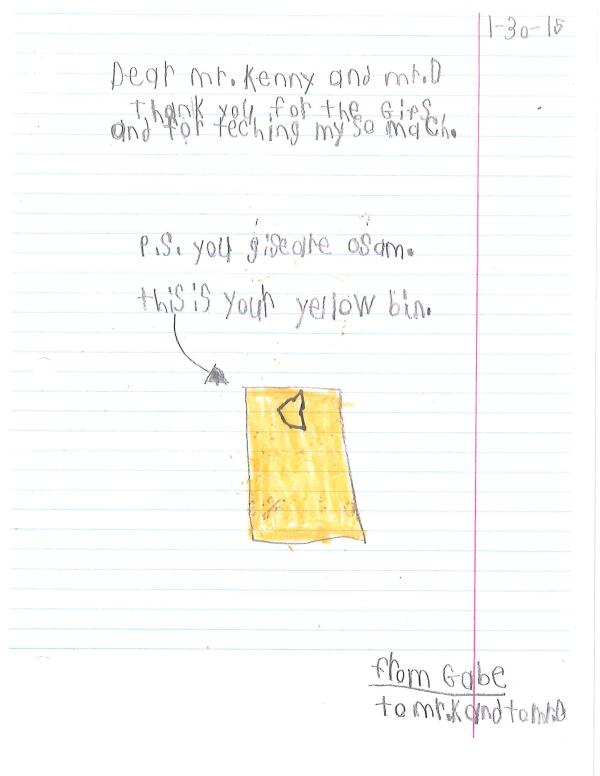 1-30-15
Dear mr. Kenny and mr.D
thank you for the Gifs
and for teching my so mach.
P.S. you gise are osam.
this is your yellow bin.
from Gabe
to mr.K and to mr.D